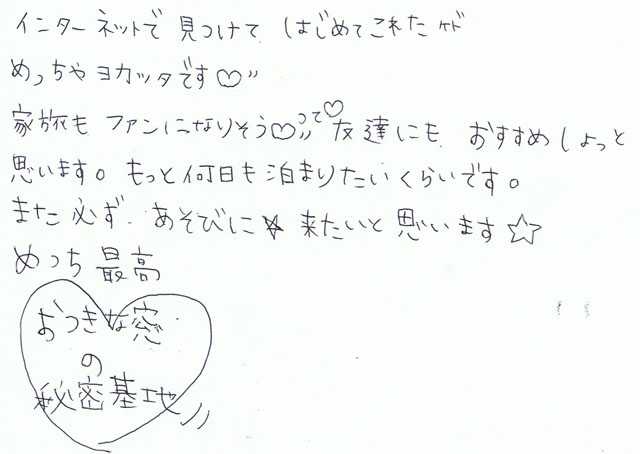 インターネットで見つけて、はじめてこれたケド
めっちゃヨカッタです♡〃
家族もファンになりそう♡〃って♡友達にも、おすすめしょっと
思います。もっと何日も泊まりたいくらいです。
また必ず、あそびに★来たいと思います☆
めっち最高
おっきな窓
の
秘密基地